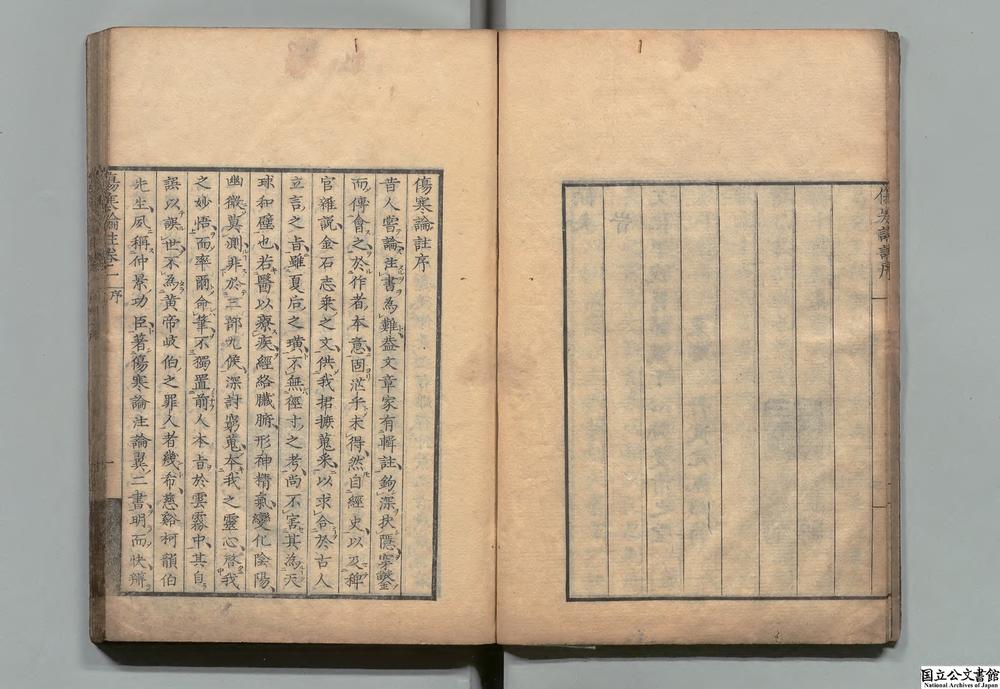 傷寒論註序
昔人嘗論注書為難蓋文章家有疇註鉤深抉隱穿鑿
而傅會之於作者本意固茫乎未得然自經史以及稗
官雜説金石志乘之文供我捃摭蒐采以求合於古人
立言之旨雖夏后之璜不無徑寸之考尚不害其為天
球和璧也若醫以療疾經絡臟腑形神精氣變化陰陽
幽微莫測非於三部九候深討窮蒐本我之靈心啓我
之妙悟而率爾命筆不獨置前人本旨於雲霧中其自
誤以誤世不為黃帝岐伯之罪人者幾希慈谿柯韻伯
先生夙稱仲景功臣著傷寒論注論翼二書明而快辯
傷寒論註卷一
序
国立公文書館
National Archives of Japan